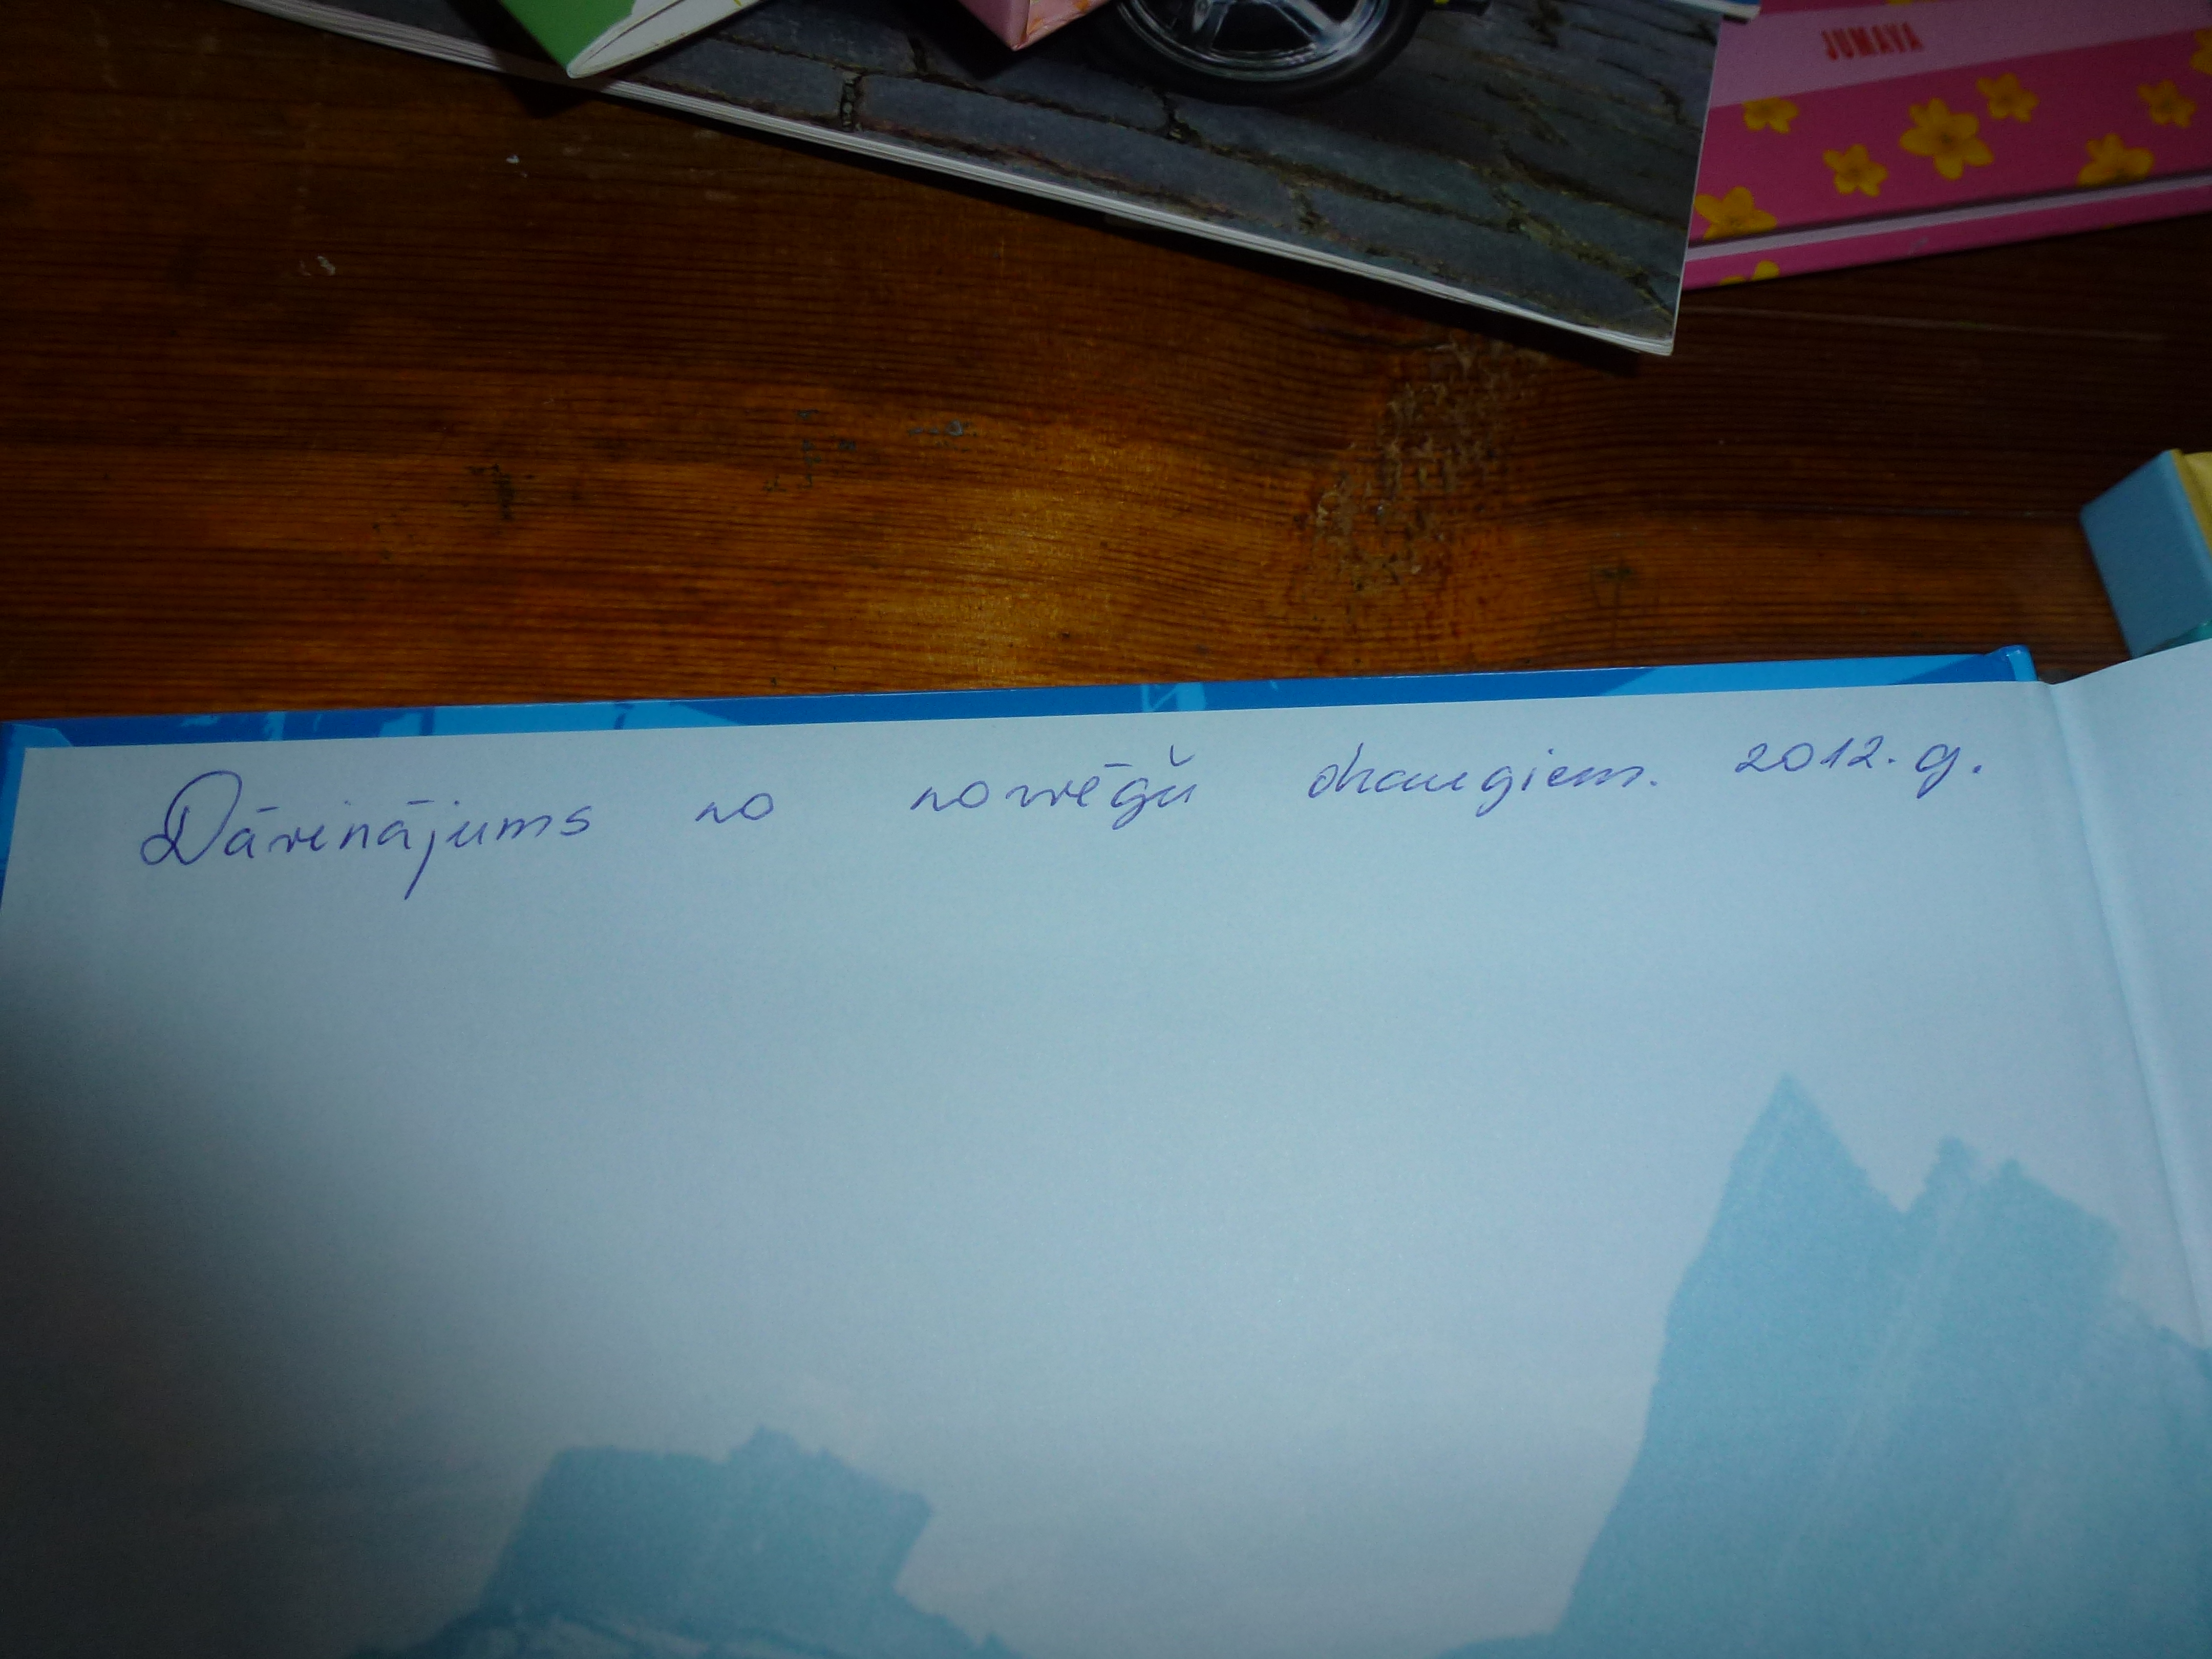 JUMAVA
Dāvinājums no norvēģu draugiem. 2012. g.